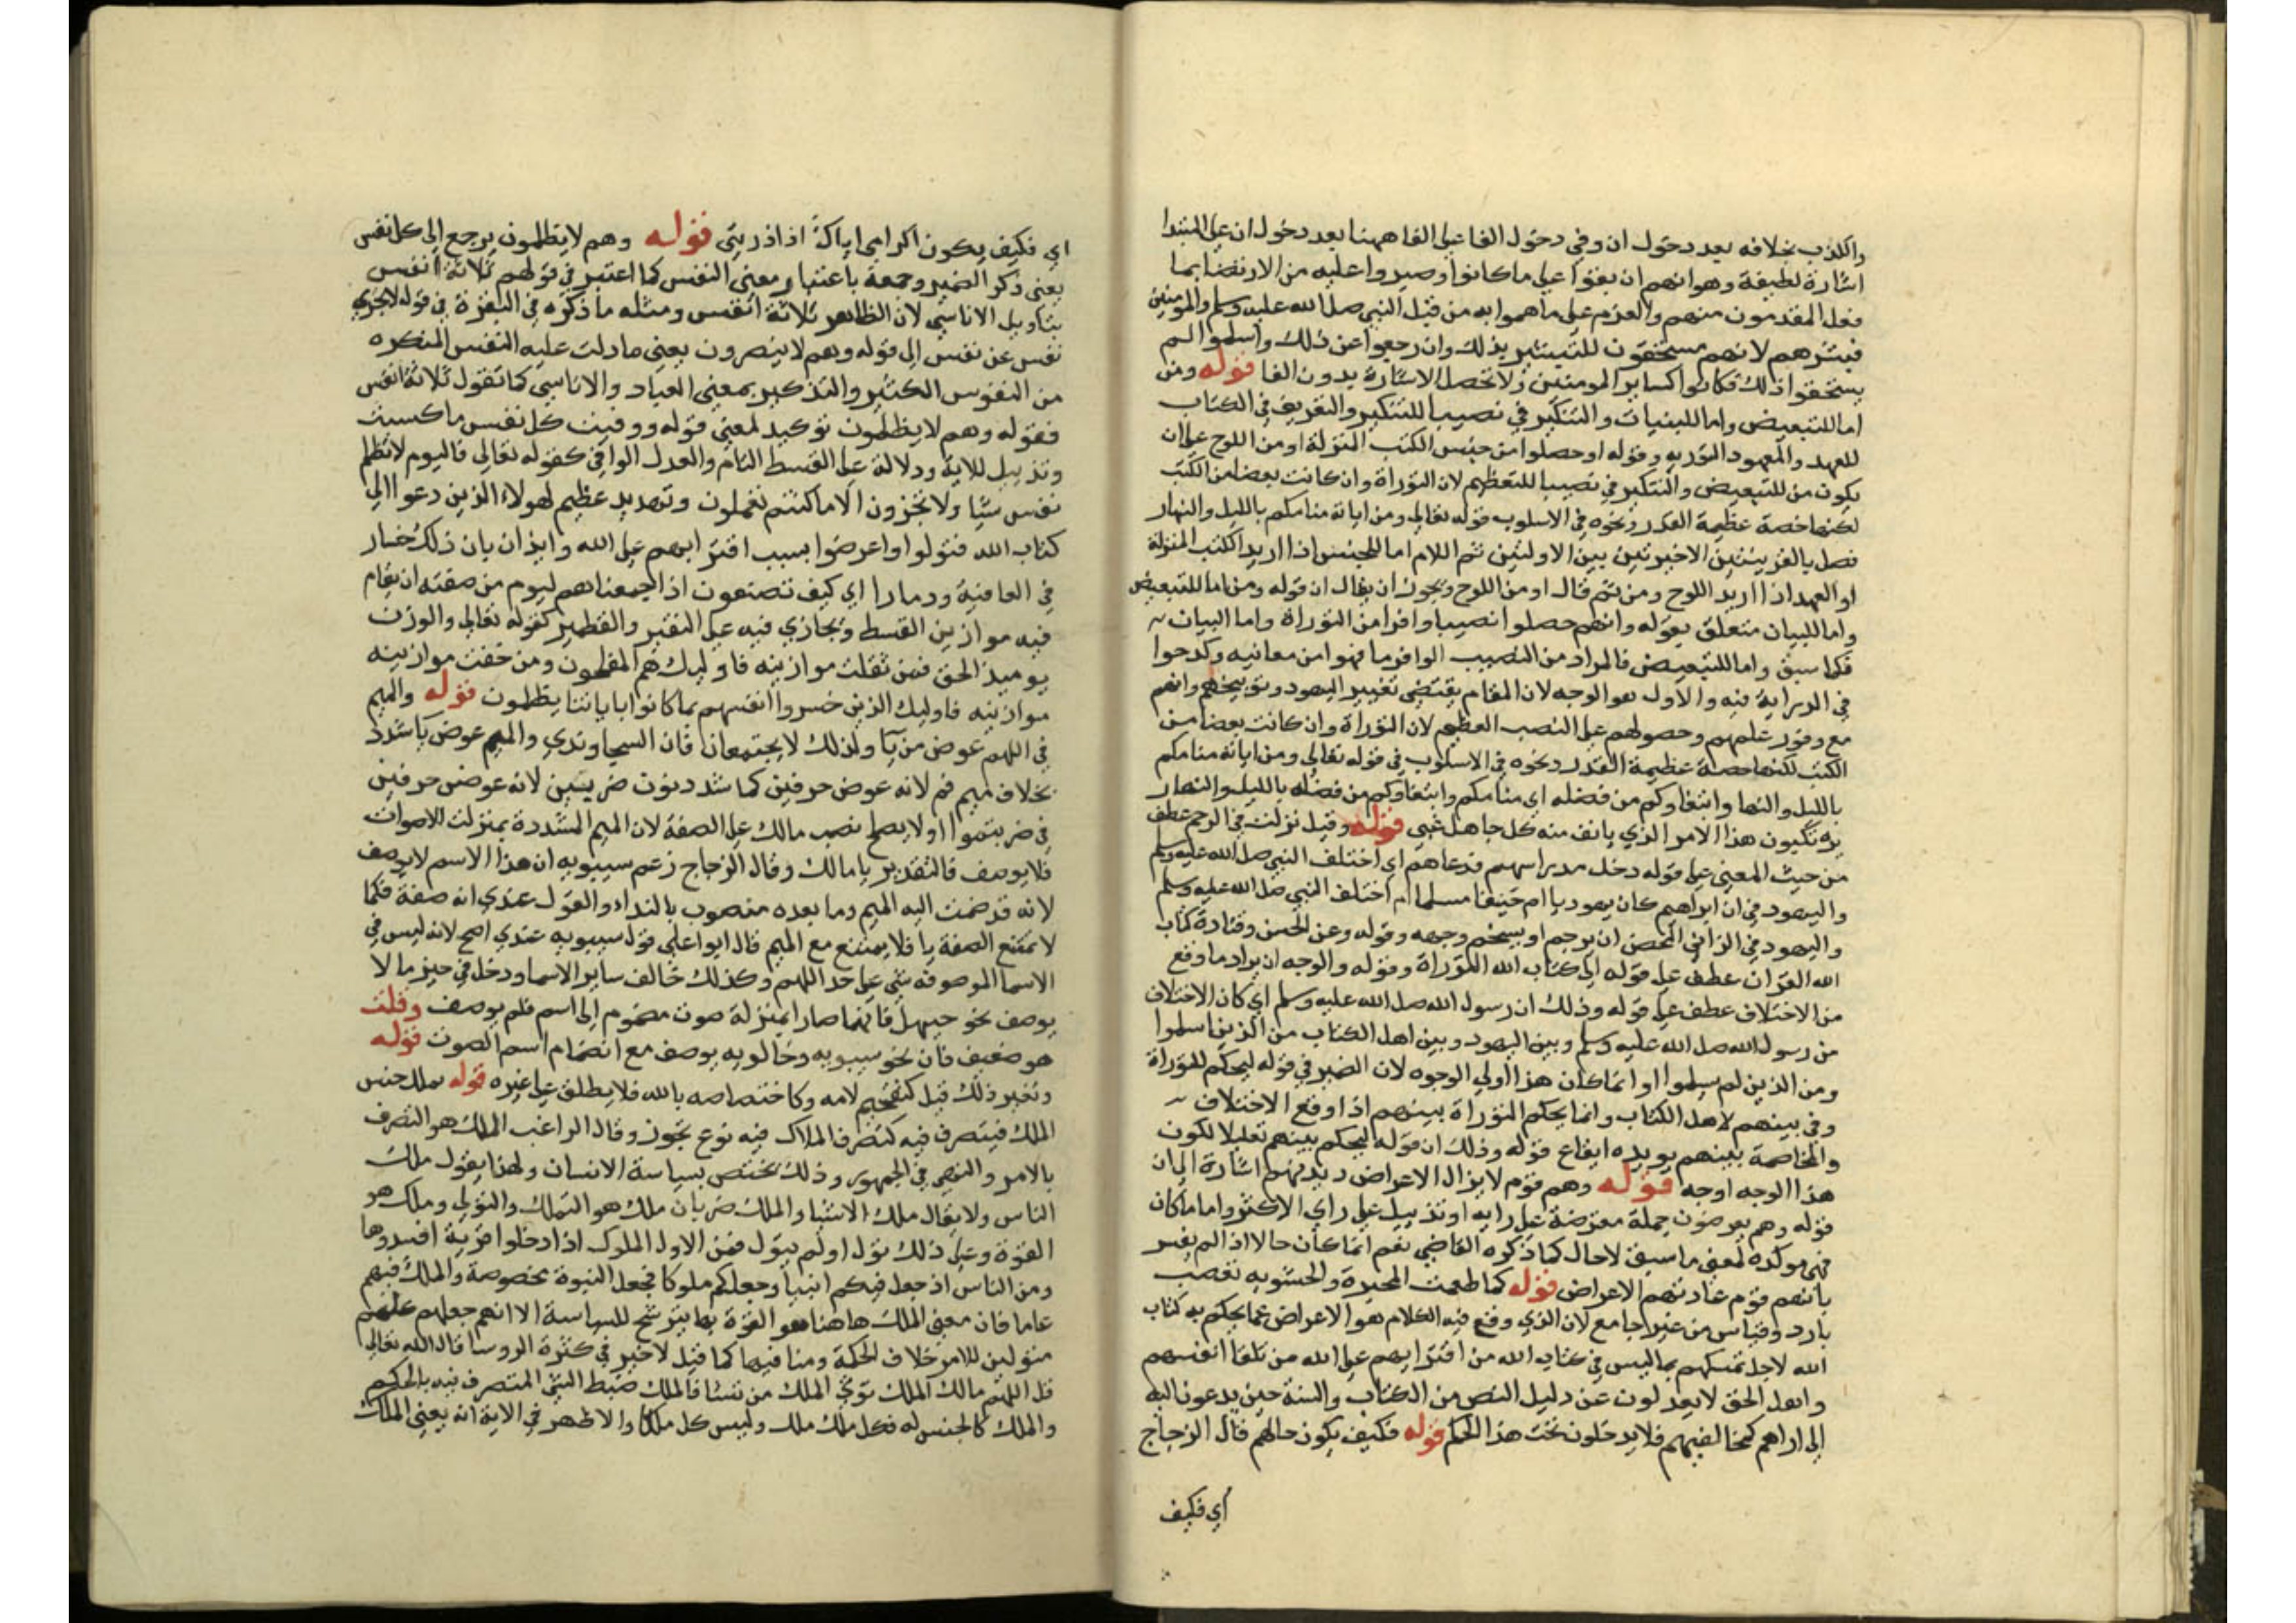 والكذب بخلافه بعد دخول ان وفي دخول الفا على الفا ههنا بعد دخول ان على المبتدا
اشارة لطيفة وهو انهم ان بقوا على ما كانوا وصبروا عليه من الارتضا بما
فعل المقدمون منهم والعزم على ما هموا به من قتل النبي صلى الله عليه وسلم والمومنين
فبشرهم لانهم مستحقون للتبشير بذلك وان رجعوا عن ذلك واسلموا لم
يستحقوا ذلك فكانوا كساير المومنين ولا تحصل الاشارة بدون الفا قوله ومن
اما للتبعيض واما للبنيات والتنكير في نصيبا للتكثير والتعريف في الكتاب
للعهد والمعهود التوريه وقوله او حصلوا من جنس الكتب المنزلة او من اللوح على ان
يكون من للتبعيض والتنكير في نصيبا للتعظيم لان التوراة وان كانت بعضا من الكتب
لكنها حصة عظيمة القدر ونحوه في الاسلوب قوله تعالى ومن اياته منامكم بالليل والنهار
فصل بالقرينتين الاخيرتين بين الاولتين ثم اللام اما للجنس اذا اريد الكتب المنزلة
او العهد اذا اريد اللوح ومن ثم قال او من اللوح ويجوز ان يقال ان قوله ومن اما للتبعيض
واما للبيان متعلق بقوله وانهم حصلوا نصيبا وافرا من التوراة واما البيان
فكما سبق واما للتبعيض فالمراد من النصيب الوافر ما فهوا من معانيه وكدحوا
في الدراية فيه والاول هو الوجه لان المقام يقتضي تعيير اليهود وتوبيخهم وانهم
مع وفور علمهم وحصولهم على النصب العظيم لان التوراة وان كانت بعضا من
الكتب لكنها حصة عظيمة القدر ونحوه في الاسلوب في قوله تعالى ومن اياته منامكم
بالليل والنها وابتغاوكم من فضله اي منامكم وابتغاوكم من فضله بالليل والنهار
يرتكبون هذا الامر الذي يانف منه كل جاهل غبي قوله وقيل نزلت في الرجم عطف
من حيث المعنى على قوله دخل مدراسهم فدعاهم اي اختلف النبي صلى الله عليه وسلم
واليهود في ان ابراهيم كان يهوديا ام حنيفا مسلما ام اختلف النبي صلى الله عليه وسلم
واليهود في الزاني المحصن ان يرجم او يسخم وجهه وقوله وعن الحسن وقتادة كتاب
الله القران عطف على قوله الى كتاب الله التوراة وقوله والوجه ان يراد ما وقع
من الاختلاف عطف على قوله وذلك ان رسول الله صلى الله عليه وسلم اي كان الاختلاف
من رسول الله صلى الله عليه وسلم وبين اليهود وبين اهل الكتاب من الذين اسلموا
ومن الذين لم يسلموا او انما كان هذا اولى الوجوه لان الضمير في قوله ليحكم للتوراة
وفي بينهم لاهل الكتاب وانما يحكم التوراة بينهم اذا وقع الاختلاف
والمخاصمة بينهم يويده ايقاع قوله وذلك ان قوله ليحكم بينهم تعليلا لكون
هذا الوجه اوجه قوله وهم قوم لا يزال الاعراض ديدنهم اشارة الى ان
قوله وهم معرضون جملة معترضة على رايه او تذييل على راي الاكثر واما ما كان
فهي موكده لمعنى ما سبق لا حال كما ذكره القاضي نعم انما كان حالا اذا لم يفسر
بانهم قوم عادتهم الاعراض قوله كما طمعت المجبرة والحشويه تعصب
بارد وقياس من غير جامع لان الذي وقع فيه الكلام هو الاعراض عما يحكم به كتاب
الله لاجل تمسكهم بما ليس في كتاب الله من افترايهم على الله من تلقا انفسهم
واهل الحق لا يعدلون عن دليل النص من الكتاب والسنة حين يدعون اليه
الى اراهم كمخالفيهم فلا يدخلون تحت هذا الحكم قوله فكيف يكون حالهم قال الزجاج
اي فكيف
اي فكيف يكون اكرامي اياك اذا ذريتي قوله وهم لا يظلمون يرجع الى كل نفس
يعني ذكر الضمير وجمعه باعتبار معنى النفس كما اعتبر في قولهم ثلاثة انفس
بتاويل الاناسي لان الظاهر ثلاثة انفس ومثله ما ذكره في البقرة في قوله لا تجزي
نفس عن نفس الى قوله وهم لا ينصرون يعني ما دلت عليه النفس المنكره
من النفوس الكثير والتذكير بمعنى العباد والاناسي كما تقول ثلاثة انفس
فقوله وهم لا يظلمون توكيد لمعنى قوله ووفيت كل نفس ما كسبت
وتذييل للاية ودلالة على القسط التام والعدل الوافي كقوله تعالى فاليوم لا تظلم
نفس شيا ولا تجزون الا ما كنتم تعملون وتهديد عظيم لهولاء الذين دعوا الى
كتاب الله فتولوا واعرضوا بسبب افترابهم على الله وايذان بان ذلك خسار
في العاقبة ودمارا اي كيف تصنعون اذا جمعناهم ليوم من صفته ان يقام
فيه موازين القسط ويجازي فيه على النقير والقطمير كقوله تعالى والوزن
يوميذ الحق فمن ثقلت موازينه فاوليك هم المفلحون ومن خفت موازينه
موازينه فاوليك الذين خسروا انفسهم بما كانوا باياتنا يظلمون قوله والميم
في اللهم عوض من يا ولذلك لا يجتمعان قال السجاوندي والميم عوض يا شدد
بخلاف ميم فم لانه عوض حرفين كما شدد نون ضربتين لانه عوض حرفين
في ضربتموا اولا يصلح نصب مالك على الصفة لان الميم المشددة بمنزلت الاصوات
فلا يوصف فالتقدير يا مالك وقال الزجاج زعم سيبويه ان هذا الاسم لا يوصف
لانه قد ضمت اليه الميم وما بعده منصوب بالنداء والقول عندي انه صفة فكما
لا تمتنع الصفة يا فلا يمتنع مع الميم قال ابوا علي قول سيبويه عندي اصح لانه ليس في
الاسما الموصوفه شي على حد اللهم وكذلك خالف ساير الاسما ودخل في حيز ما لا
يوصف نحو حيهل فانهما صارا بمنزلة صوت مضموم الى اسم فلم يوصف وقلت
هو ضعيف فان نحو سيبويه وخالويه يوصف مع انضمام اسم الصوت قوله
وتغير ذلك قيل كتفخيم لامه وكاختصاصه بالله فلا يطلق على غيره قوله تملك جنس
الملك فيتصرف فيه كتصرف الملاك فيه نوع تجوز وقال الراغب الملك هو التصرف
بالامر والنهي في الجمهور وذلك يختص بسياسة الانسان ولهذا يقول ملك
الناس ولا يقال ملك الاشيا والملك ضربان ملك هو التملك والتولي وملك هو
القوة وعلى ذلك تول او لم يتول فمن الاول الملوك اذا دخلوا قرية افسدوها
ومن الناس اذ جعل فيكم انبيا وجعلكم ملوكا فجعل النبوة مخصوصة والملك فيهم
عاما فان معنى الملك هاهنا هو القوة بها يترشح للسياسة الا انهم جعلهم كلهم
متولين للامر خلاف الحكمة ومنافيها كما قيل لا خير في كثرة الروسا قال الله تعالى
قل اللهم مالك الملك توتي الملك من تشا فالملك ضبط الشي المتصرف فيه بالحكم
والملك كالجنس له فكل ملك ملك وليس كل ملك والاظهر في الاية انه يعني الملك